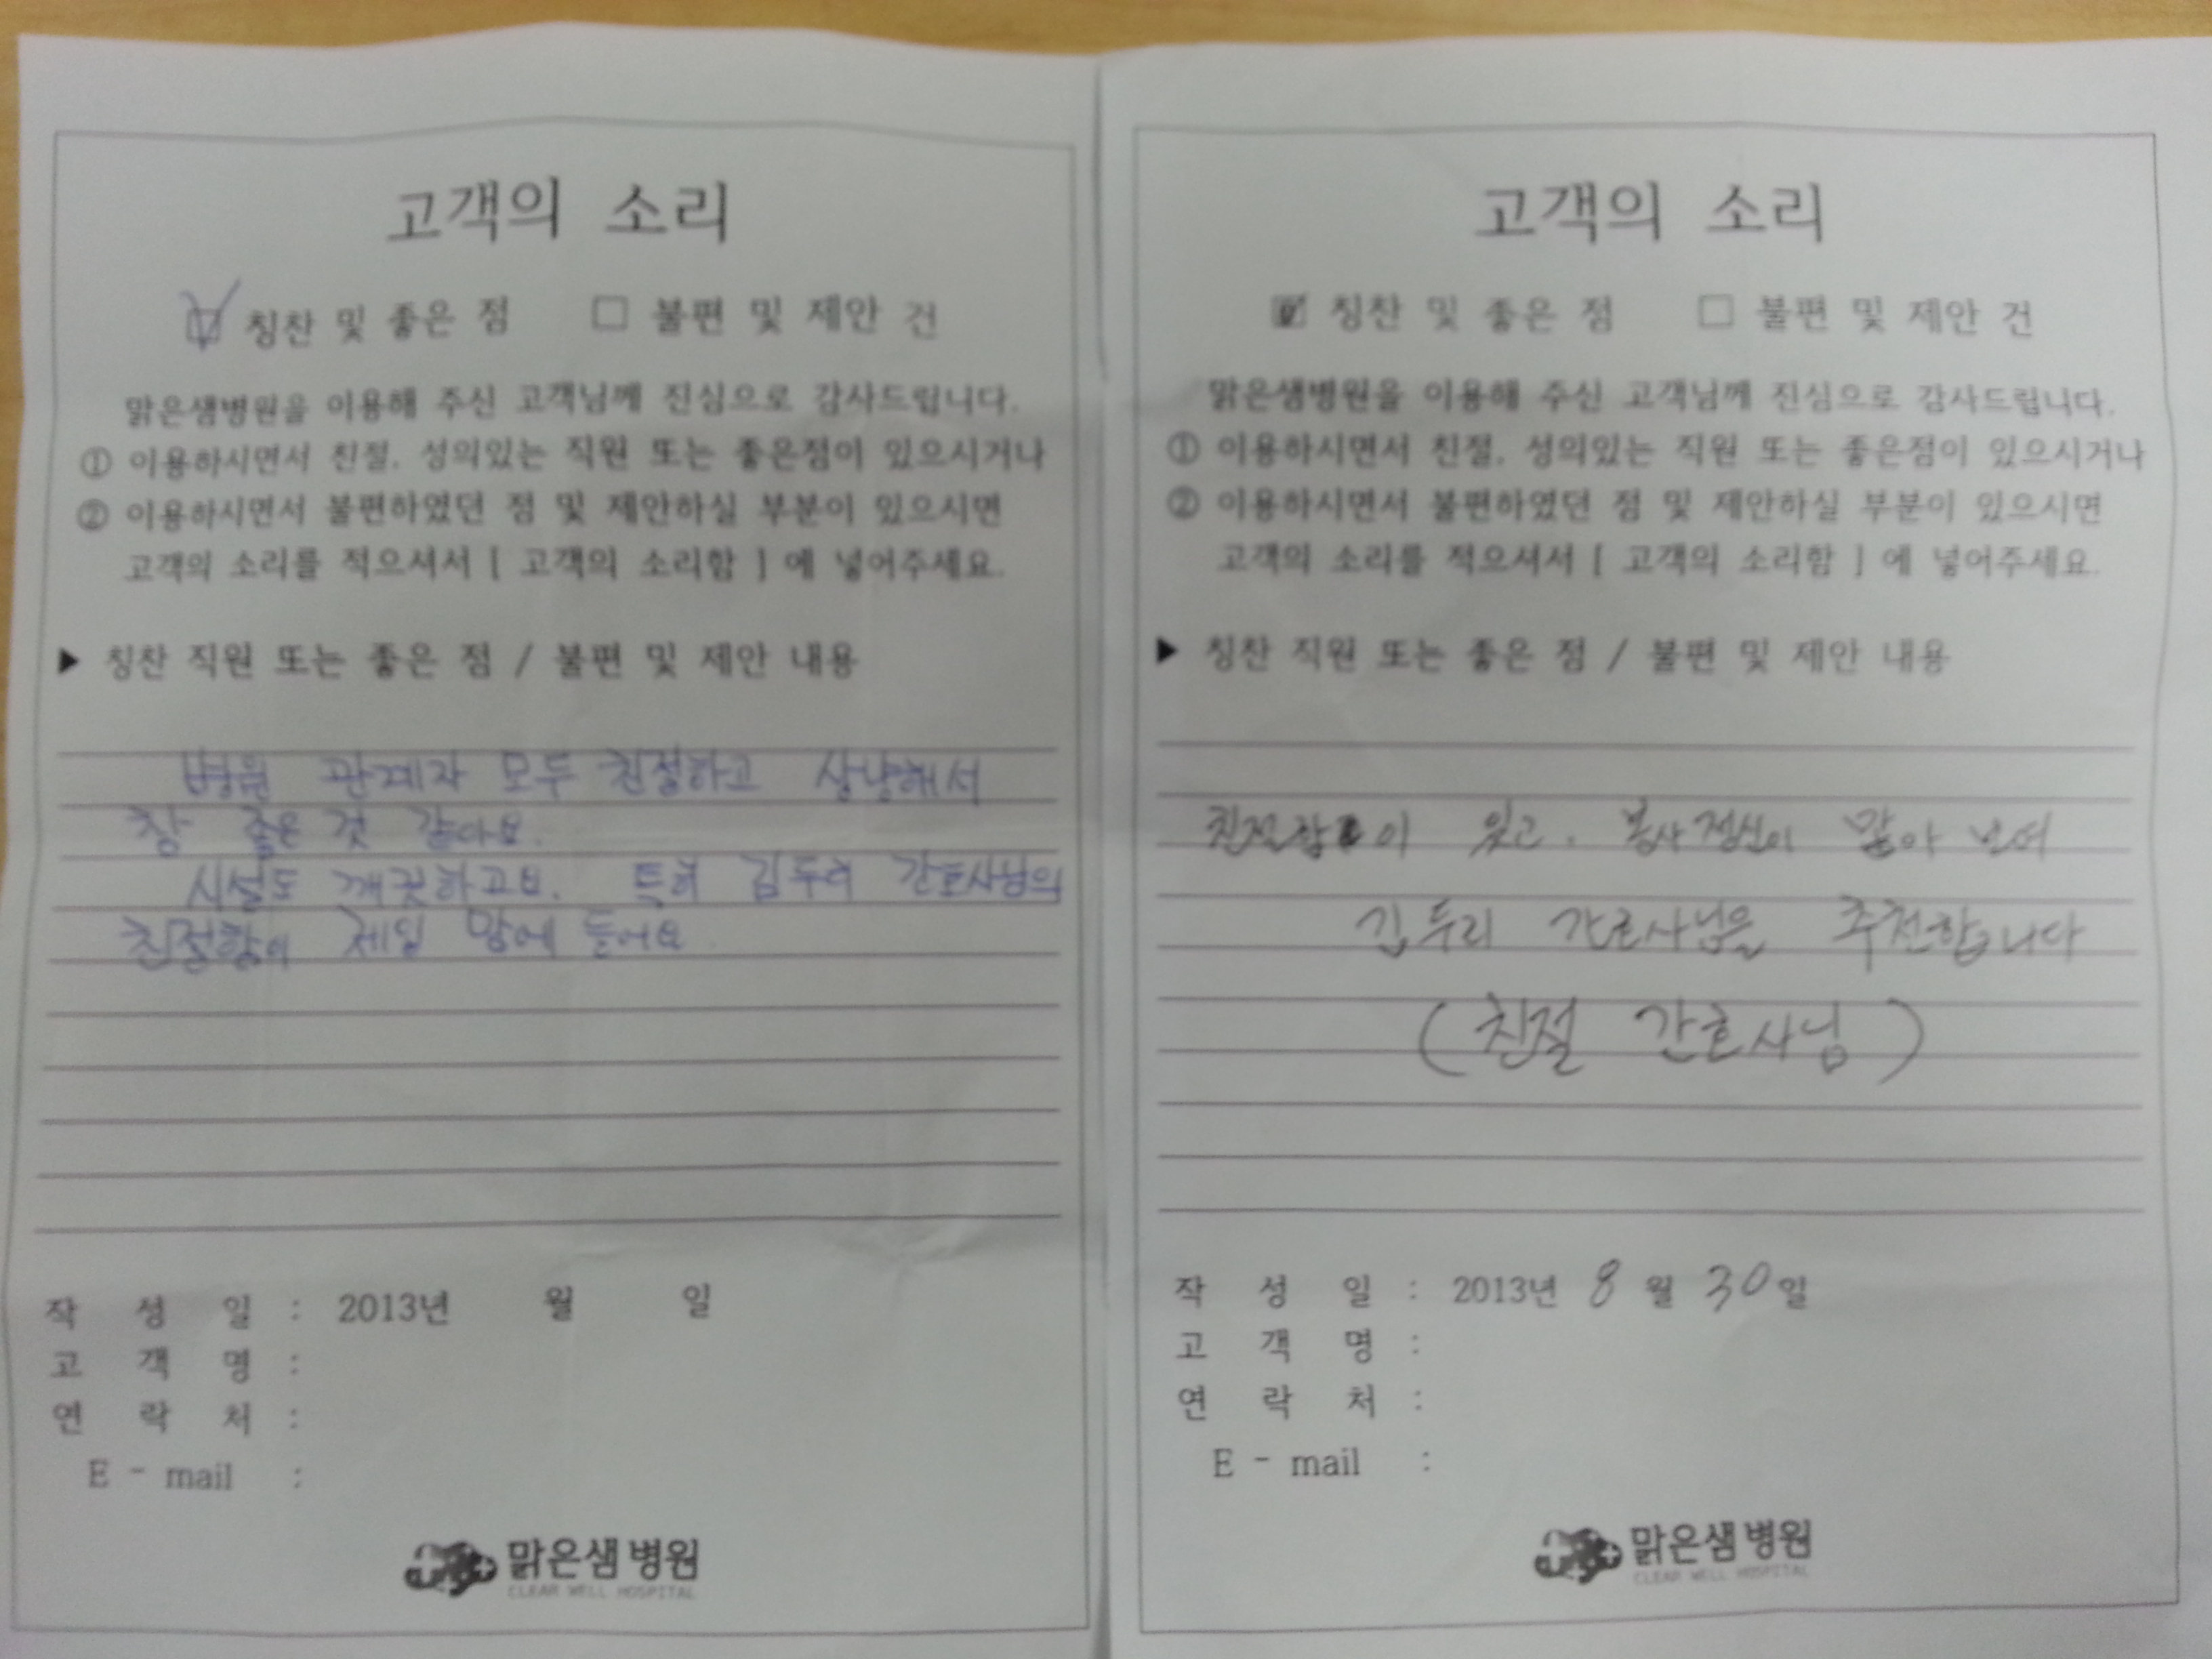 고객의 소리
칭찬 및 좋은 점 불편 및 제안 건
맑은샘병원을 이용해 주신 고객님께 진심으로 감사드립니다.
① 이용하시면서 친절, 성의있는 직원 또는 좋은점이 있으시거나
② 이용하시면서 불편하였던 점 및 제안하실 부분이 있으시면
고객의 소리를 적으셔서 [ 고객의 소리함 ] 에 넣어주세요.
▶ 칭찬 직원 또는 좋은 점 / 불편 및 제안 내용
병원 관계자 모두 친절하고 상냥해서
참 좋은 것 같아요.
시설도 깨끗하고요. 특히 김두리 간호사님의
친절함이 제일 맘에 들어요.
작 성 일 : 2013년 월 일
고 객 명 :
연 락 처 :
E - mail :
맑은샘병원
CLEAR WELL HOSPITAL
고객의 소리
칭찬 및 좋은 점 불편 및 제안 건
맑은샘병원을 이용해 주신 고객님께 진심으로 감사드립니다.
① 이용하시면서 친절, 성의있는 직원 또는 좋은점이 있으시거나
② 이용하시면서 불편하였던 점 및 제안하실 부분이 있으시면
고객의 소리를 적으셔서 [ 고객의 소리함 ] 에 넣어주세요.
▶ 칭찬 직원 또는 좋은 점 / 불편 및 제안 내용
친절함이 있고, 봉사정신이 많아 보여
김두리 간호사님을 추천합니다
(친절 간호사님)
작 성 일 : 2013년 8 월 30일
고 객 명 :
연 락 처 :
E - mail :
맑은샘병원
CLEAR WELL HOSPITAL